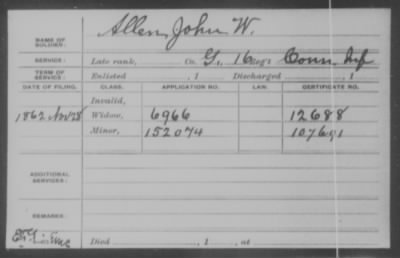 NAME OF SOLDIER: Allen, John W.
SERVICE: Late rank, Co. G, 16 Reg't Conn. Inf
TERM OF SERVICE: Enlisted , 1 Discharged , 1
DATE OF FILING. CLASS. APPLICATION NO. LAW. CERTIFICATE NO.
Invalid,
1862 Nov 28 Widow, 6966 12688
Minor, 152074 107691
ADDITIONAL SERVICES:
REMARKS:
Died , 1 , at